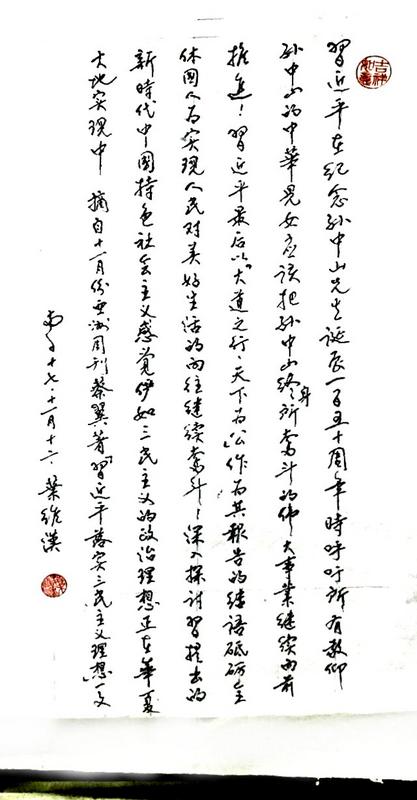 習近平在纪念孙中山先生誕辰一百五十周年時呼吁所有敬仰
孙中山的中華兒女应该把孙中山終身所奮斗的伟大事業继续向前
推進！習近平最后以"大道之行、天下为公"作为其報告的结语砥砺全
体國人为实現人民对美好生活的向往继续奮斗！深入探讨習提出的
新時代中國特色社会主义感覚伊如三民主义的政治理想正在華夏
大地实現中 摘自十一月份亚洲周刊蔡翼著"習近平落实三民主义理想"一文
十七·十一月十六 葉維漢
吉祥如意